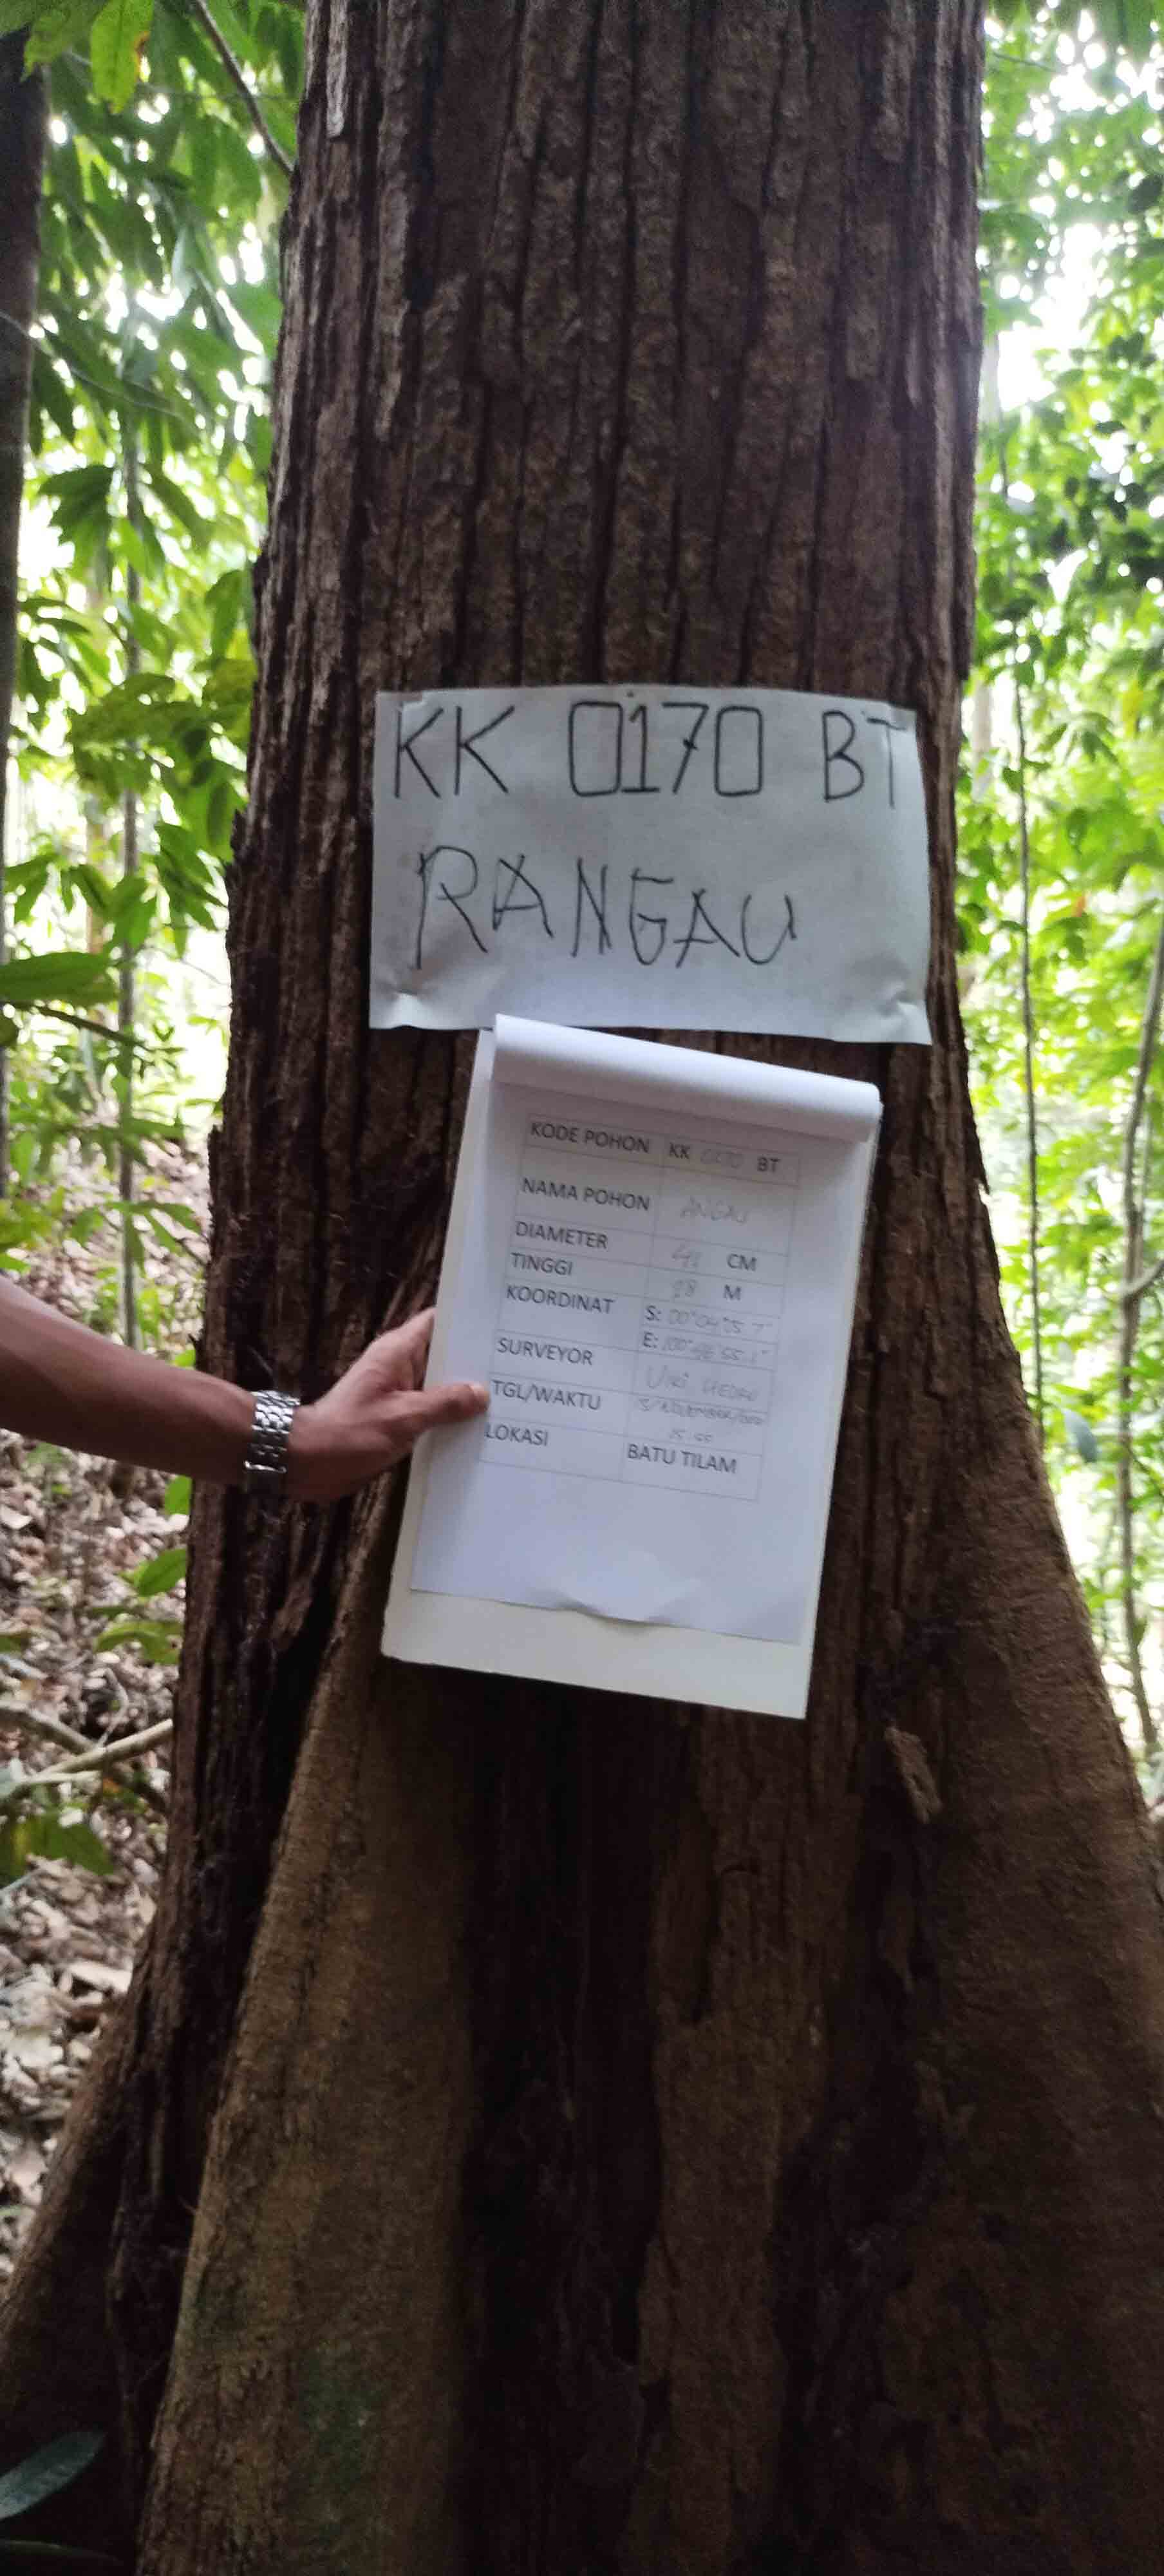 KK 0170 BT
RANGAU
KODE POHON KK 0170 BT
NAMA POHON ANGAU
DIAMETER CM
TINGGI 28 M
KOORDINAT S: 00°04'05.7"
E:
SURVEYOR
TGL/WAKTU
LOKASI BATU TILAM